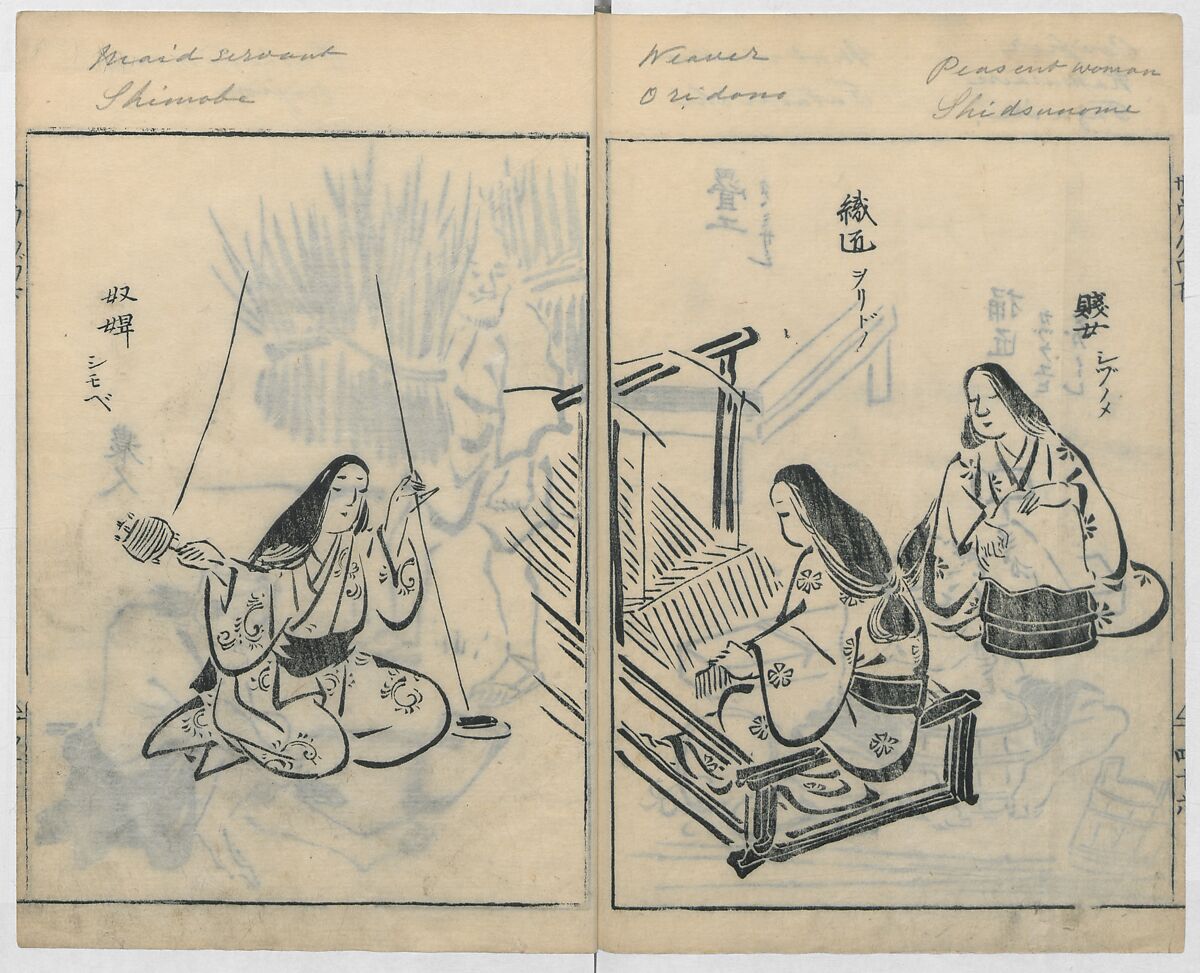 Maid servant
Shimobe
Weaver
Oridono
Peasent woman
Shidsunome
奴婢
シモベ
織匠
ヲリドノ
賤女
シヅノメ